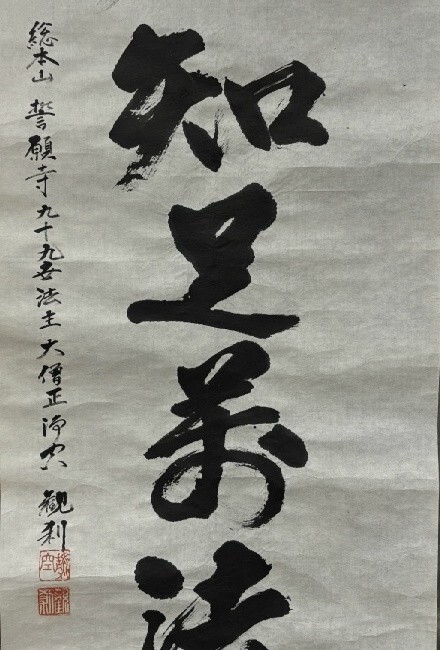 知足萬法
総本山 誓願寺九十九世法主大僧正 観利